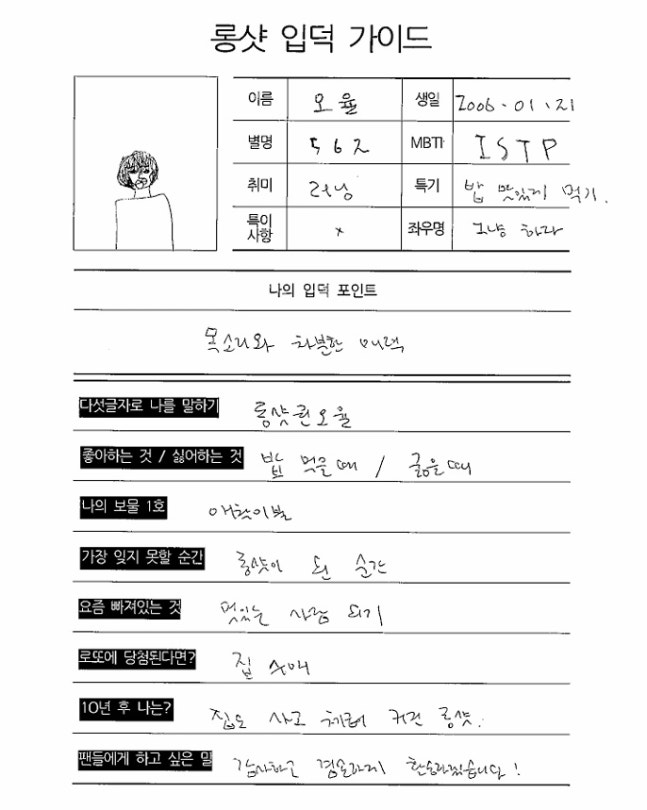 롱샷 입덕 가이드
이름 오율 생일 2006.01.21
별명 562 MBTI ISTP
취미 러닝 특기 밥 맛있게 먹기.
특이사항 x 좌우명 그냥 하라
나의 입덕 포인트
목소리와 차분한 매력
다섯글자로 나를 말하기 롱샷린오율
좋아하는 것 / 싫어하는 것 밥 먹을때 / 굶을때
나의 보물 1호 애착이불
가장 잊지 못할 순간 롱샷이 된 순간
요즘 빠져있는 것 멋있는 사람 되기
로또에 당첨된다면? 집 수애
10년 후 나는? 집도 사고 커진 롱샷.
팬들에게 하고 싶은 말 감사하고 겸손하게 환승하겠습니다!